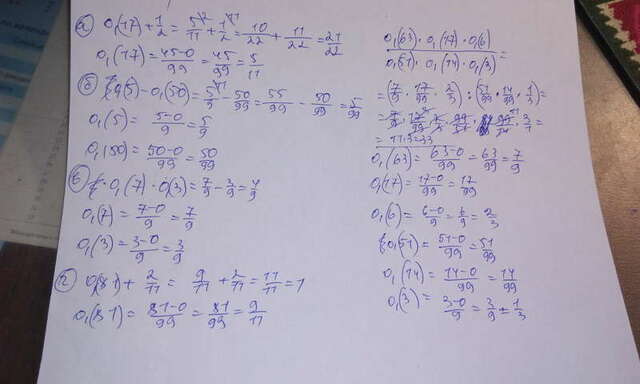 а) 0,(17)+1/2=5/11+1/2=10/22+11/22=21/22
0,(17)=45-0/99=45/99=5/11
б) 0,(5)-0,(50)=5/9-50/99=55/99-50/99=5/99
0,(5)=5-0/9=5/9
0,(50)=50-0/99=50/99
в) 0,(7)-0,(3)=7/9-3/9=4/9
0,(7)=7-0/9=7/9
0,(3)=3-0/9=3/9
г) 0,(81)+2/11=9/11+2/11=11/11=1
0,(81)=81-0/99=81/99=9/11
0,(63)·0,(17)·0,(6)
0,(51)·0,(14)·0,(3)=
=(7/9·17/99·2/3):(51/99·14/99·1/3)=
=11·3=33
0,(63)=63-0/99=63/99=7/9
0,(17)=17-0/99=17/99
0,(6)=6-0/9=6/9=2/3
0,(51)=51-0/99=51/99
0,(14)=14-0/99=14/99
0,(3)=3-0/9=3/9=1/3